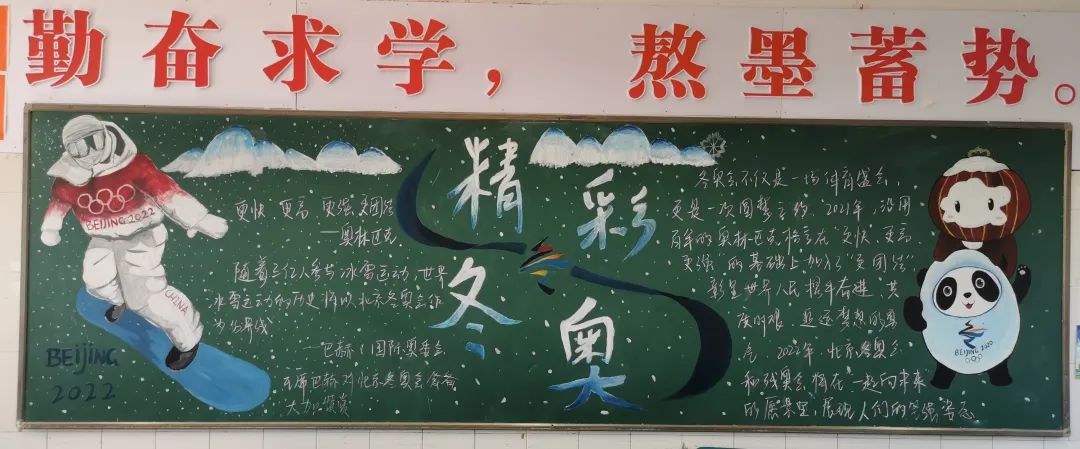 勤奋求学，熬墨蓄势。
精彩冬奥
BEIJING 2022
CHINA
BEIJING
2022
更快、更高、更强、更团结
——奥林匹克
随着三亿人参与冰雪运动，世界
冰雪运动的历史将以北京冬奥会作
为分界线
——巴赫（国际奥委会
主席巴赫对北京冬奥会筹备
大加赞赏
冬奥会不仅是一场体育盛会，
更是一次圆梦之约。2021年，沿用
百年的奥林匹克格言在“更快、更高、
更强”的基础上加入了“更团结”
彰显世界人民携手奋进、共
度时艰、追逐梦想的
2022年，北京冬奥会
和残奥会将在“一起向未来”
的愿景里，展现人们的姿态
BEIJING 2020